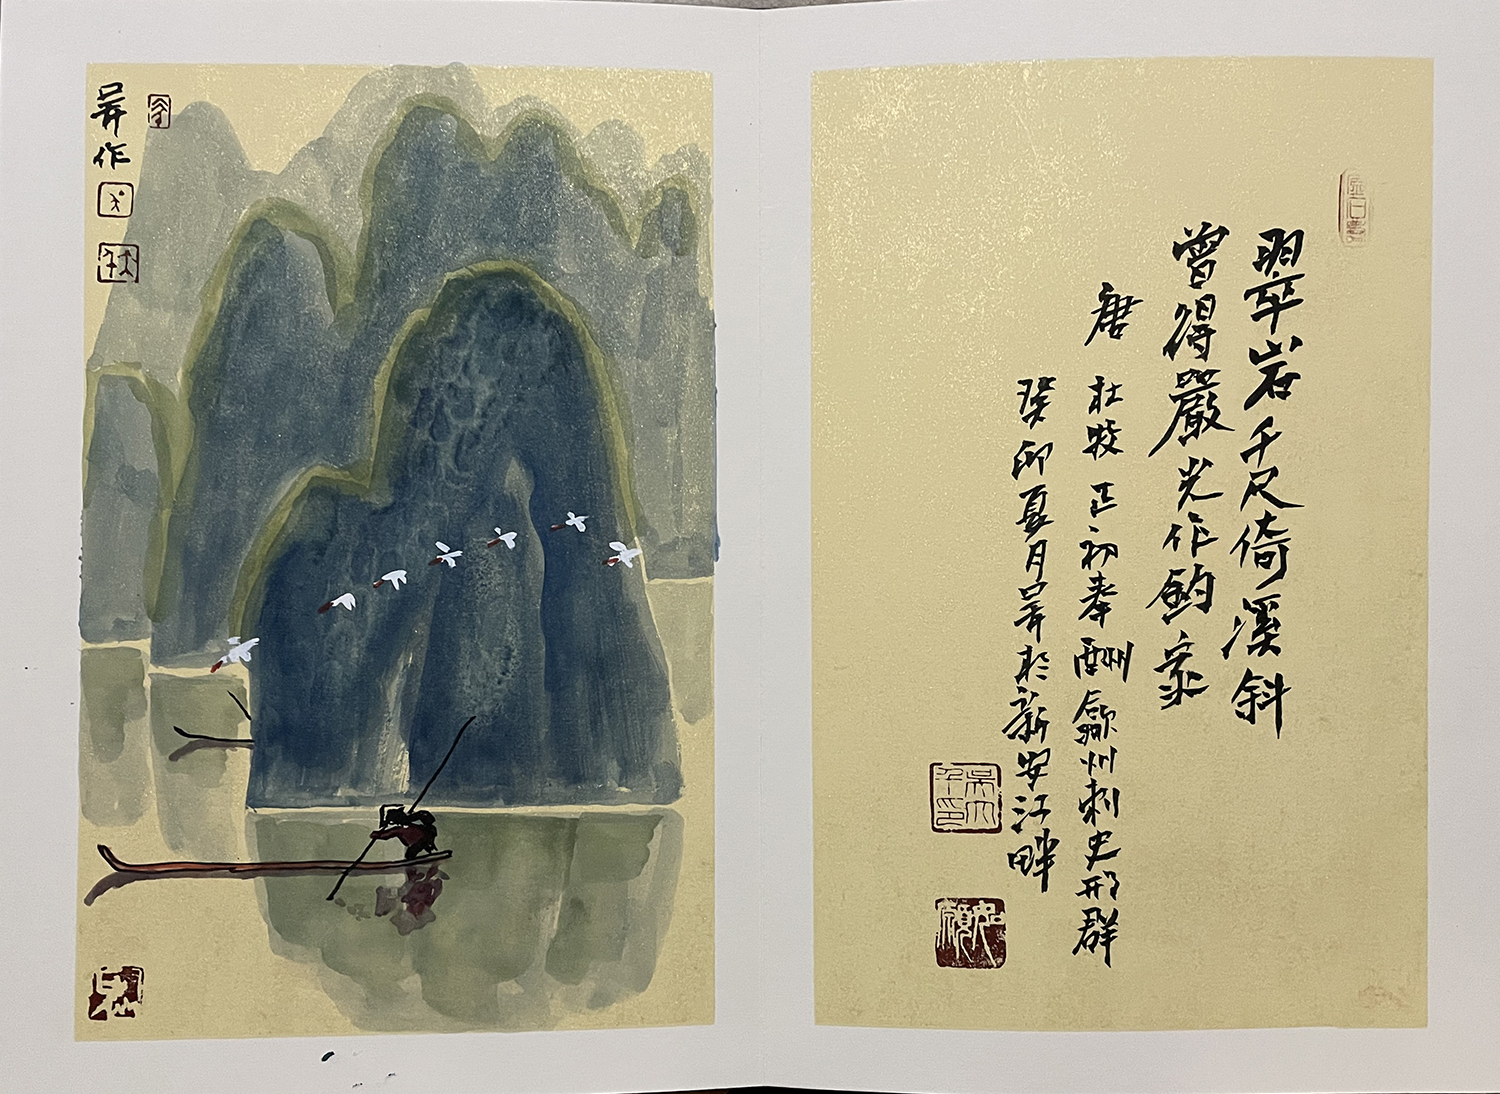 翠岩千尺倚溪斜
曾得嚴光作釣家
唐 杜牧 正初奉酬歙州刺史邢群
癸卯夏月於新安江畔
作